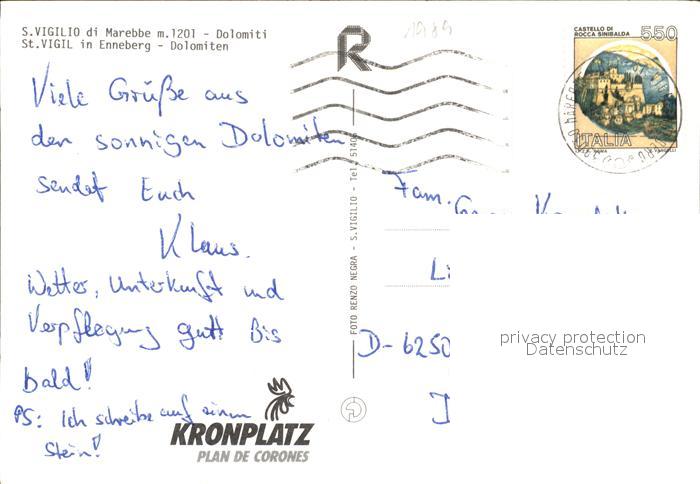 S.VIGILIO di Marebbe m.1201 - Dolomiti
St.VIGIL in Enneberg - Dolomiten
1989
R
CASTELLO DI
ROCCA SINIBALDA
550
ITALIA
Viele Grüße aus
den sonnigen Dolomiten
sendet Euch
Klaus.
Wetter, Unterkunft und
Verpflegung gut! Bis
bald!
PS: Ich schreibe auf einem
Stein!
FOTO RENZO NEGRA - S.VIGILIO - Tel. 51406
Fam.
D-6250
privacy protection
Datenschutz
KRONPLATZ
PLAN DE CORONES